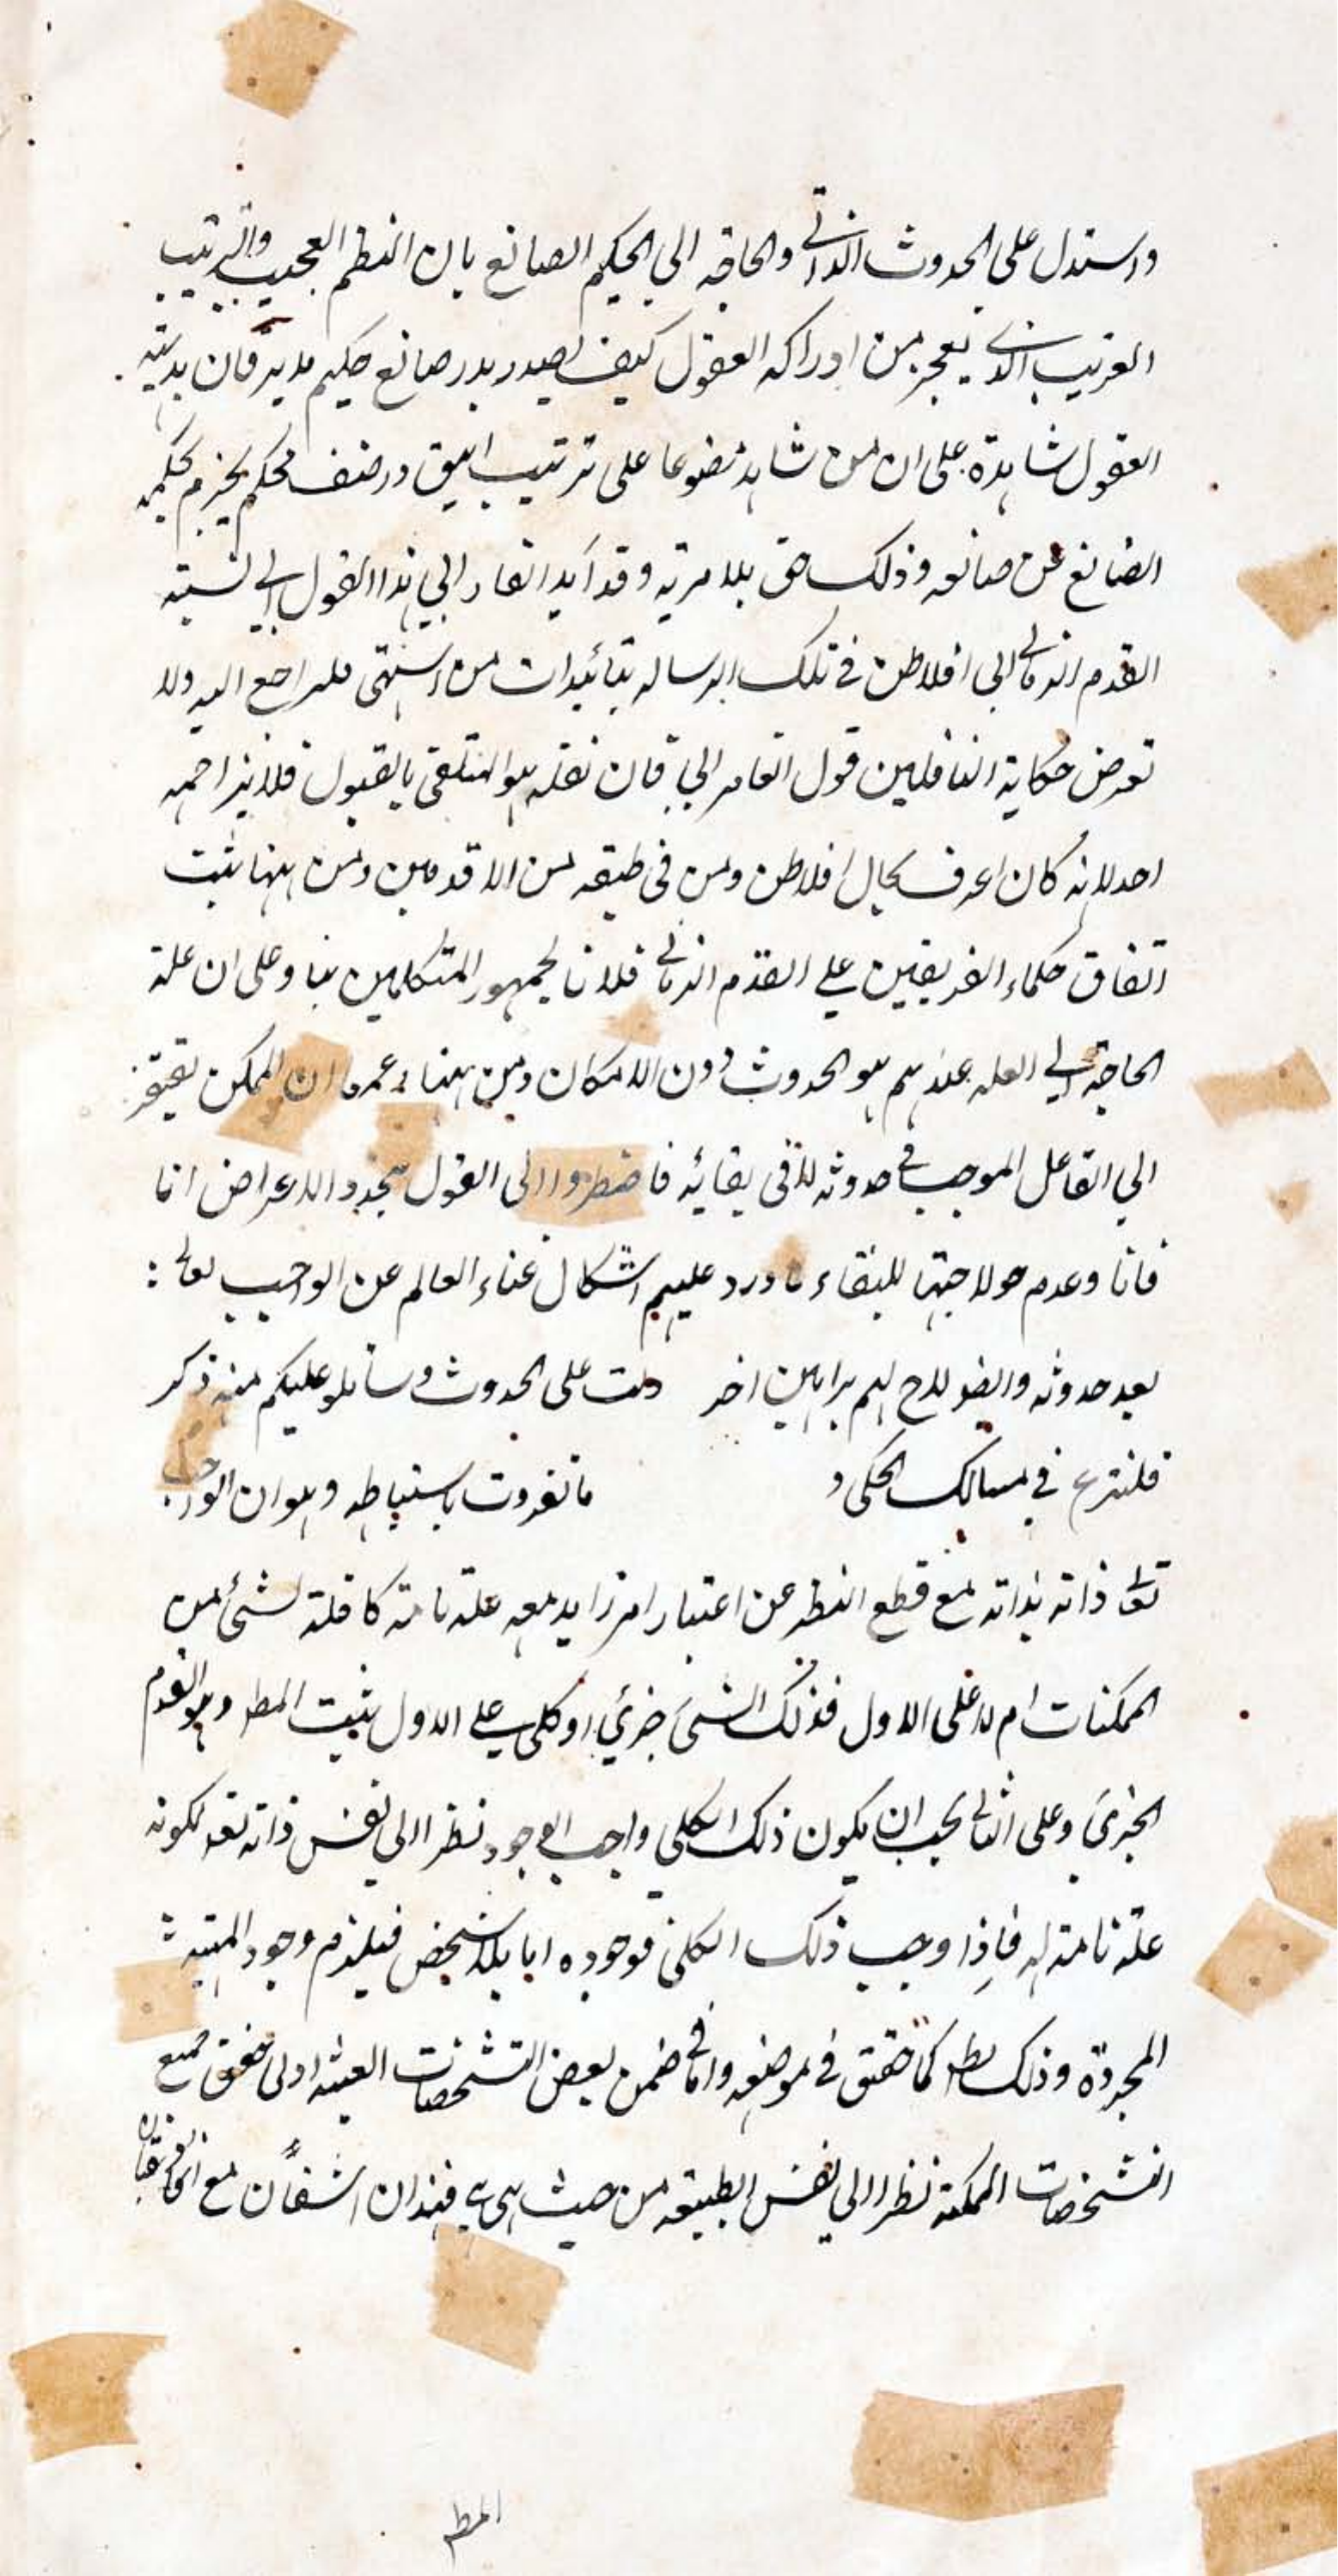 واستدل على الحدوث الذاتي والحاجة الى الحكيم الصانع بان النظم العجيب والترتيب
الغريب الذي يعجز من ادراكه العقول كيف يصدر بدر صانع حكيم مدبر فان بديهة
العقول شاهدة على ان من شاهد مصنوعا على ترتيب انيق ورصف محكم يجزم بحكمة
الصانع عن صانعه وذلك حق بلا مرية وقد ايد الفارابي هذا القول الى نسبة
القدم الزماني الى افلاطن في تلك الرسالة بتائيدات من اشتهى فليراجع اليه ولا
تعرض حكاية الناقلين قول الفارابي فان نقله هو المتلقى بالقبول فلا يزاحمه
احد لانه كان اعرف بحال افلاطن ومن في طبقه من الاقدمين ومن ههنا ثبت
اتفاق حكماء الفريقين على القدم الزماني خلافا لجمهور المتكلمين بناء على ان علة
الحاجة الى العلة عندهم هو الحدوث دون الامكان ومن ههنا زعموا ان الممكن يفتقر
الى الفاعل الموجب في حدوثه لا في بقائه فاضطروا الى القول بتجدد الاعراض انا
فانا وعدم حولا جتها للبقاء ما ورد عليهم اشكال غناء العالم عن الواجب تعالى :
بعد حدوثه وايضا لاح لهم براهين اخر دلت على الحدوث وساتلو عليكم منه ذكر
فلنشرع في مسالك الحكى و ما تفردت باستنباطه وهو ان الواجب
تعالى ذاته بذاته مع قطع النظر عن اعتبار امر زايد معه علة تامة كافلة لشئ من
الممكنات ام لا على الاول فذلك الشئ جزئي او كلي على الاول يثبت المط وهو القدم
الجزئي وعلى الثاني يجب ان يكون ذلك الكلي واجب الوجود نظرا الى نفس ذاته تعه لكونه
علة تامة له فاذا وجب ذلك الكلي فوجوده اما بلا تشخص فيلزم وجود المهية :
المجردة وذلك بط كما حقق في موضعه واما في ضمن بعض التشخصات العينه اولى فوق جميع
التشخصات الممكنة نظرا الى نفس الطبيعة من حيث هي هي فهذان الشقان مع
المط